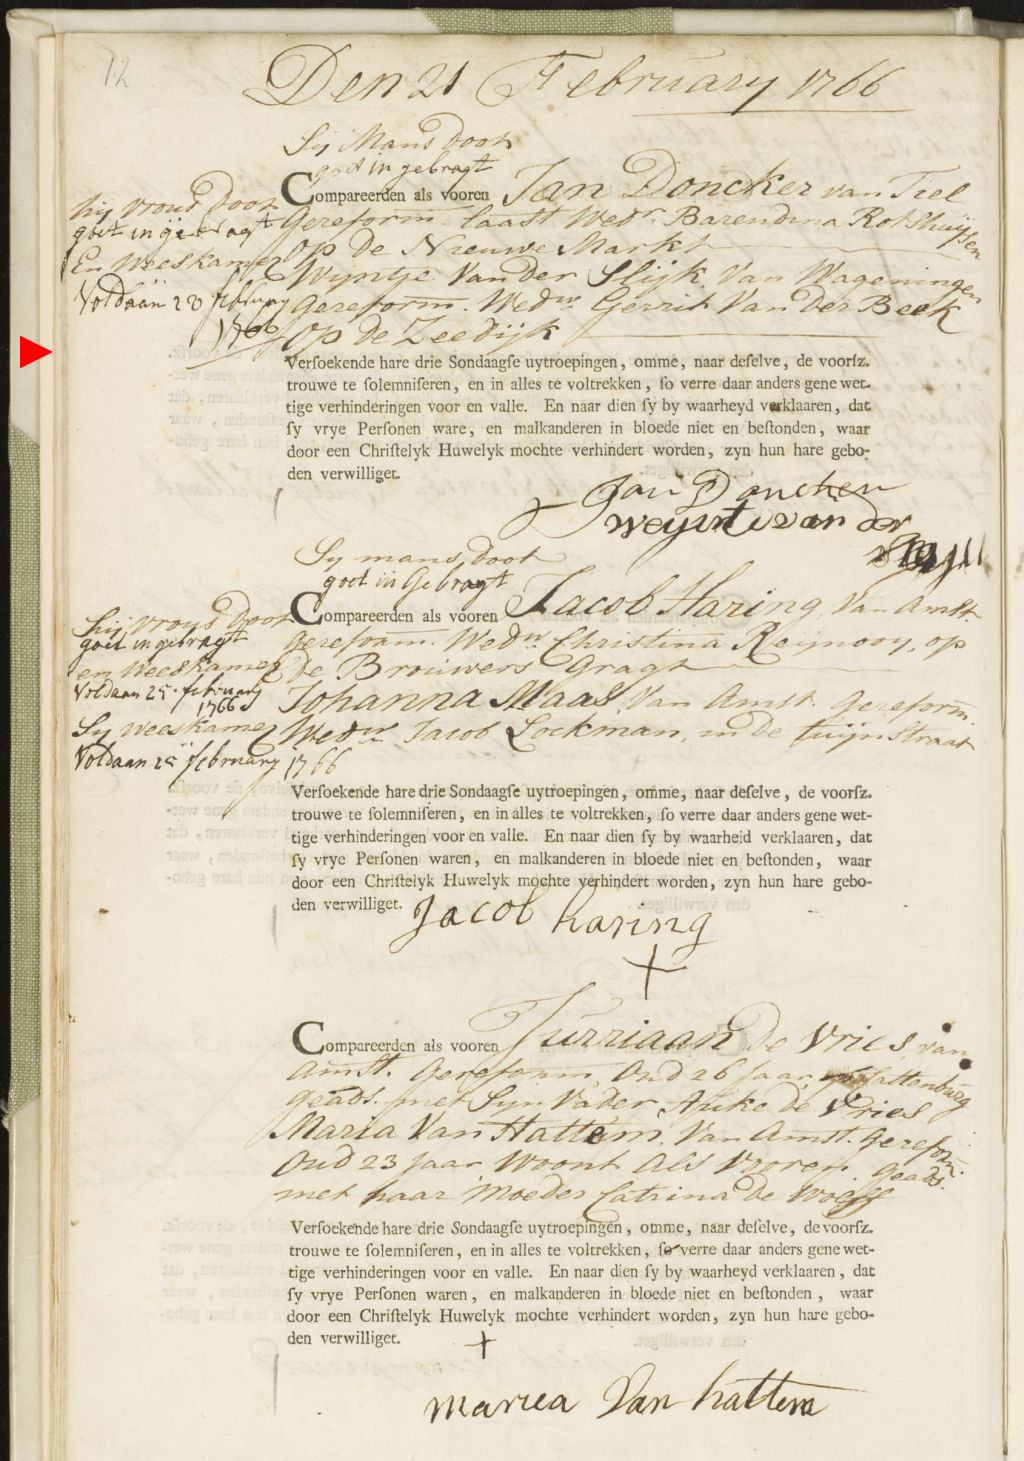 12
Den 21 February 1766
Sij Mans Doot
goet in gebragt
Compareerden als vooren Jan Doncker van Tiel
hij vrous Doot
goet in gebragt
En Weeskamer
Voldaan 20 february
1766
Gereform. laast Wedr. Barendina Rotshuijsen
op de Nieuwe Markt
Wijntje Van der Slijk, Van Wageningen
gereform. Wedw. Gerrit Van der Beek
op de Zeedijk
Versoekende hare drie Sondaagse uytroepingen, omme, naar deselve, de voorsz.
trouwe te solemniseren, en in alles te voltrekken, so verre daar anders gene wet-
tige verhinderingen voor en valle. En naar dien sy by waarheyd verklaaren, dat
sy vrye Personen ware, en malkanderen in bloede niet en bestonden, waar
door een Christelyk Huwelyk mochte verhindert worden, zyn hun hare gebo-
den verwilliget.
Jan Doncker
weijntie van der
Sy mans doot
goet in Gebragt
Compareerden als vooren Jacob Haring, Van Amst.
hij vrous doot
goet in gebragt
en Weeskamer
Voldaan 25 february
1766
Sy weeskamer
Voldaan 25 february 1766
gereform. Wedr. Christina Reijnooy, op
de Brouwers Gragt
Johanna Maas, Van Amst. gereform.
Wedw. Jacob Lockman, in de tuijn Straat
Versoekende hare drie Sondaagse uytroepingen, omme, naar deselve, de voorsz.
trouwe te solemniseren, en in alles te voltrekken, so verre daar anders gene wet-
tige verhinderingen voor en valle. En naar dien sy by waarheid verklaaren, dat
sy vrye Personen waren, en malkanderen in bloede niet en bestonden, waar
door een Christelyk Huwelyk mochte verhindert worden, zyn hun hare gebo-
den verwilliget.
Jacob haring
Compareerden als vooren Jurriaan de Vries, van
Amst. Gereform, Oud 26 Jaar, Kattenburg
geads. met Syn Vader Auke de Vries
Maria Van Hattem, Van Amst. Gereform.
Oud 23 Jaar Woont als Vooren. geads.
met haar Moeder Catrina de Wolff
Versoekende hare drie Sondaagse uytroepingen, omme, naar deselve, de voorsz.
trouwe te solemniseren, en in alles te voltrekken, so verre daar anders gene wet-
tige verhinderingen voor en valle. En naar dien sy by waarheyd verklaaren, dat
sy vrye Personen waren, en malkanderen in bloede niet en bestonden, waar
door een Christelyk Huwelyk mochte verhindert worden, zyn hun hare gebo-
den verwilliget.
mariea Van hattem